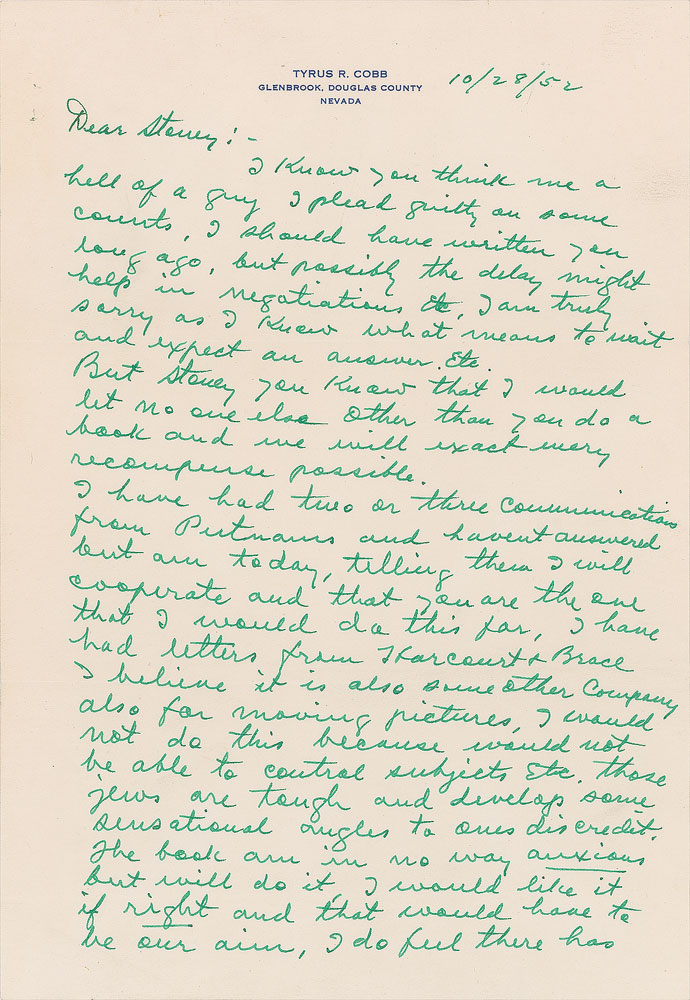 TYRUS R. COBB
GLENBROOK, DOUGLAS COUNTY
NEVADA
10/28/52
Dear Stoney; -
I Know you think me a
hell of a guy I plead guilty on some
counts, I should have written you
long ago, but possibly the delay might
help in negotiations Etc, I am truly
sorry as I Know what means to wait
and expect an answer. Etc.
But Stoney you Know that I would
let no one else other than you do a
book and we will exact every
recompense possible.
I have had two or three communications
from Putnams and havent answered
but am today, telling them I will
cooperate and that you are the one
that I would do this for, I have
had letters from Harcourt & Brace
I believe it is also some other Company
also for moving pictures, I would
not do this because would not
be able to control subjects Etc. those
jews are tough and develop some
sensational angles to ones discredit.
The book am in no way anxious
but will do it, I would like it
if right and that would have to
be our aim, I do feel there has